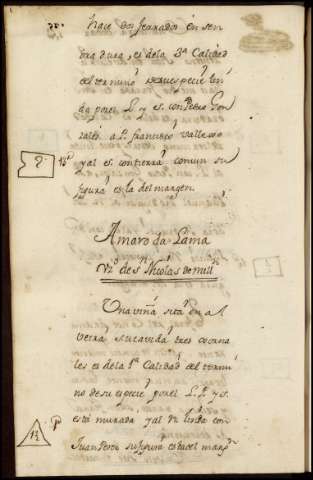 hace dos ferrados en sen
bradura, es dela 3ª Calidad
del termino de su especie lin
da por el L. y es. con Pedro Gon
zales a P. francisco Vallejo
y al es. con tierra comun su
figura es la del margen.
Amaro da Lama
Vº de Sn Nicolas
Una viña sita en a
su cavida tres cavana
les es dela 1ª Calidad del termi
no de su especie por el L. P. y s.
esta murada y al n. linda con
Juan Perez su figura es la del marg.n
1/2